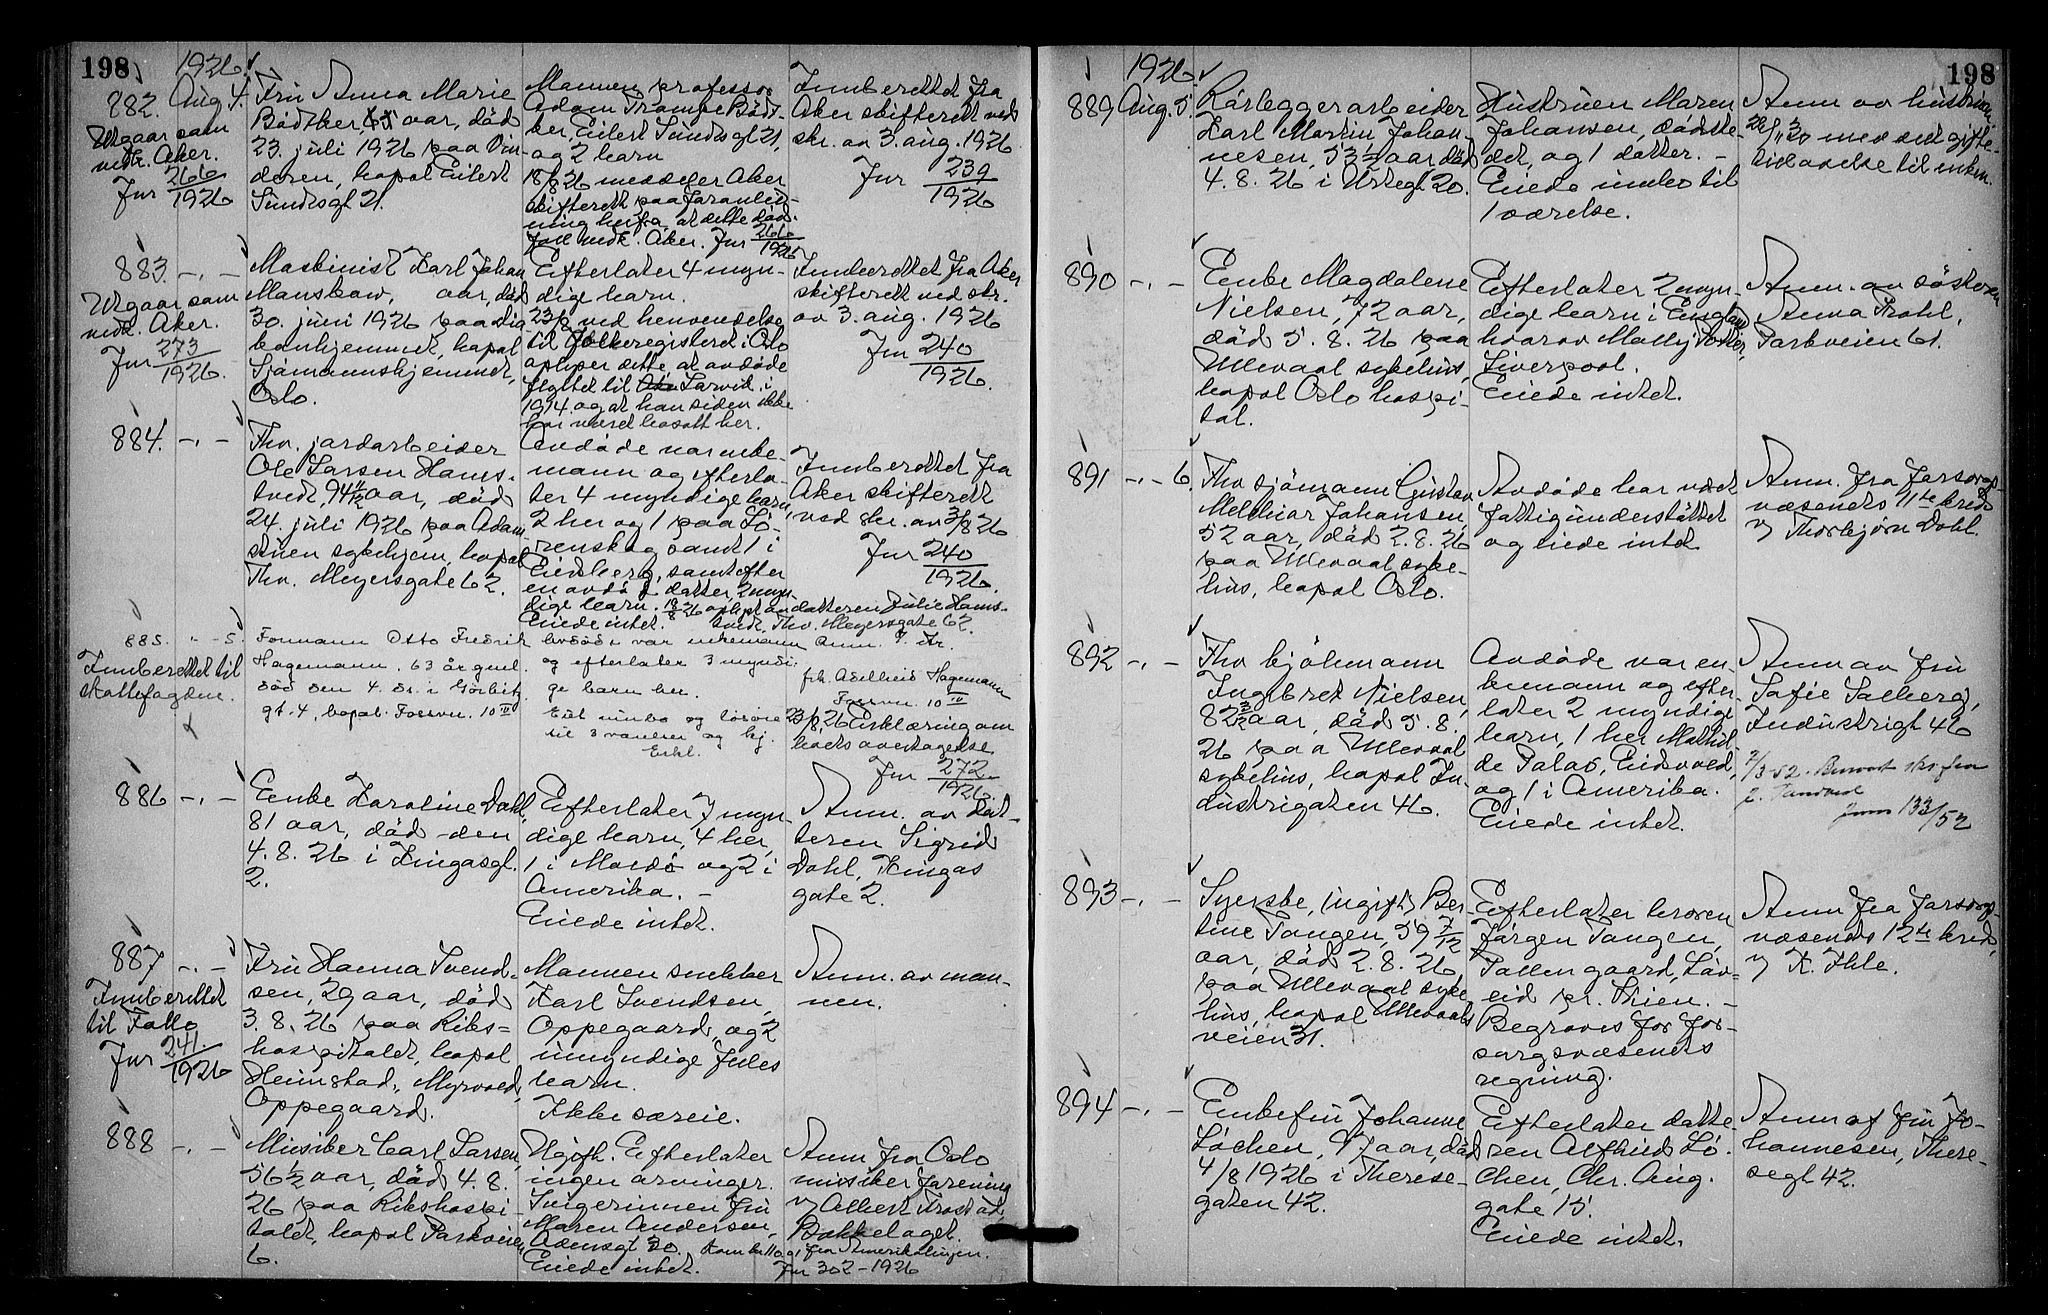 198
1926
882.
Aug 4.
Utgaar som
vedk. Aker.
Jnr 266/1926
Fru Anna Marie
Bødtker, aar, død
23. juli 1926 paa Vin-
deren, bopæl Eilert
Sundsgt 21.
Mannen professor
Adam Trampe Bødt-
ker, Eilert Sundsgt 21,
og 2 barn
18/8 26 meddeler Aker
skifterett paa foranled-
ning herfra, at dette døds-
fall vedk. Aker. Jnr 266/1926
Innberettet fra
Aker skifterett ved
skr. av 3. aug. 1926
Jnr 239/1926
883. -.-
Utgaar som
vedk. Aker.
Jnr 273/1926.
Maskinist Karl Johan
Manskow, aar, død
30. juni 1926 paa Dia-
konhjemmet, bopæl
Sjømannshjemmet,
Oslo.
Efterlater 4 myn-
dige barn.
23/8 ved henvendelse
til folkeregisteret i Oslo
oplyser dette, at avdøde
flyttet til Larvik i
1914 og at han siden ikke
har været bosatt her.
Innberettet fra Aker
skifterett ved skr.
av 3. aug. 1926
Jnr 240/1926.
884. -.-
Fhv. jordarbeider
Ole Larsen Hams-
tvedt, 94 11/12 aar, død
24. juli 1926 paa Adam-
stuen sykehjem, bopæl
Thv. Meyersgate 62.
Avdøde var enke-
mann og efterla-
ter 4 myndige barn,
2 her og 1 paa Lø-
renskog samt 1 i
Eidsberg, samt efter
en avdød datter, 2 myn-
dige barn. 18/8 26 oplyst av datteren Julie Hams-
Eiede intet. tvedt, Thv. Meyersgate 62.
Innberettet fra
Aker skifterett
ved skr. av 3/8 26
Jnr 240/1926.
885. " - 5.
Innberettet til
skattefogden.
Formann Otto Fredrik
Hagemann, 63 år gml.
død den 4. ds. i Gørbitz
gt. 4, bopæl Fossvn. 10 II
Avdøde var enkemann
og efterlater 3 myndi-
ge barn her.
Eiet innbo og løsøre
til 3 værelser og kj.
Enkl.
Anm. av
frk. Adelheid Hagemann
Fossvn. 10 II
23/8 26 Erklæring om
boets overtagelse
Jnr 272/1926.
886 -.-
Enke Karoline Dahl,
81 aar, død den
4. 8. 26 i Kingosgt.
2.
Efterlater 7 myn-
dige barn, 4 her,
1 i Moldø og 2 i
Amerika. -
Eiede intet.
Anm. av dat-
teren Sigrid
Dahl, Kingos
gate 2.
887 -.-
Innberettet
til Follo
Jnr 241./1926
Fru Hanna Svend-
sen, 29 aar, død
3. 8. 26 paa Riks-
hospitalet, bopæl
Heimstad, Myrvold,
Oppegaard.
Mannen snekker
Karl Svendsen,
Oppegaard, og 2
umyndige fælles
barn.
Ikke særeie.
Anm. av man-
nen.
888 -.-
Musiker Carl Larsen,
56 1/2 aar, død 4. 8.
26 paa Rikshospi-
talet, bopæl Parkveien
6.
Ugift. Efterlater
ingen arvinger.
Svigerinnen fru
Maren Andersen,
Adensgt 30.
Eiede intet.
Anm fra Oslo
musiker forening
v/ Albert Trostad,
Bækkelaget.
fra Amerikalinjen.
Jnr 302-1926
198
1926
889 Aug. 5.
Rørleggerarbeider
Karl Martin Johan-
nesen, 53 1/2 aar, død
4. 8. 26 i Urtegt 20.
Hustruen Maren
Johansen, dødste-
det, og 1 datter. -
Eiede innbo til
1 værelse.
Anm av hustruen
med det gifte-
890 -.-
Enke Magdalene
Nielsen, 72 aar,
død 5. 8. 26 paa
Ullevaal sykehus,
bopæl Oslo hospi-
tal.
Efterlater 2 myn-
dige barn i England,
hvorav Molly
Liverpool.
Eiede intet.
Anm. av søsteren
Anna Krohl,
Parkveien 61.
891 -.- 6.
Fhv sjømann Gustav
Melchior Johansen,
52 aar, død 2. 8. 26
paa Ullevaal syke-
hus, bopæl Oslo.
Avdøde har været
fattigunderstøttet
og eiede intet
Anm. fra forsorgs-
væsenets 11te kreds
v/ Thorbjørn Dahl.
892 -.-
Fhv kjøbmann
Ingebret Nielsen,
82 3/12 aar, død 5. 8.
26 paa Ullevaal
sykehus, bopæl In-
dustrigaten 46.
Avdøde var en-
kemann og efter-
later 2 myndige
barn, 1 her Mathil-
de Palas, Eidsvold,
og 1 i Amerika.
Eiede intet.
Anm av fru
Sofie Solberg,
Industrigt 46
7/3-52. skr fra
Jnr 133/52
893 -.-
Syerske, (ugift) Ber-
tine Tangen, 59 7/12
aar, død 2. 8. 26
paa Ullevaal syke-
hus, bopæl Ullevaals
veien 31.
Efterlater broren
Jørgen Tangen,
Tollen gaard, Løv-
eid pr. Skien. -
Begraves for for-
sorgsvæsenets
regning.
Anm fra forsorgs-
væsenets 12te kreds,
v/ K. Ihle.
894 -.-
Enkefru Johanne
Løchen, 97 aar, død
4/8 1926 i Therese-
gaten 42.
Efterlater datte-
ren Alfhild Lø-
chen, Chr. Aug.
gate 15.
Eiede intet.
Anm af fru Jo-
hannesen, There-
segt 42.